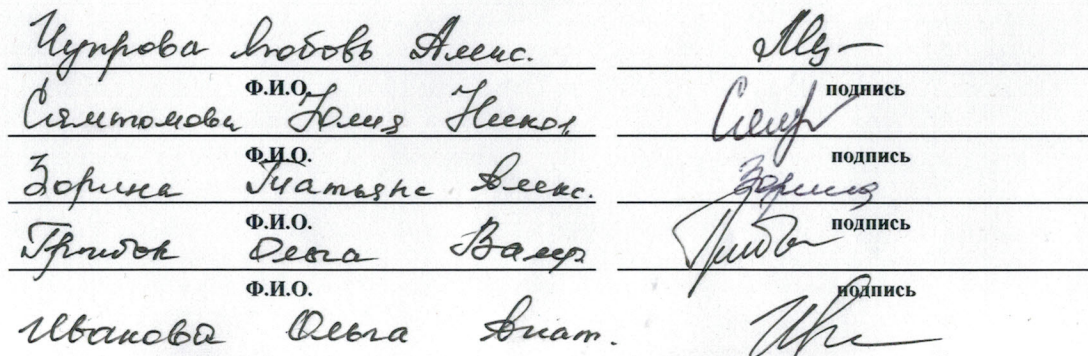 Чупрова Любовь Алекс.
Ф.И.О. подпись
Юлия Никол
Ф.И.О. подпись
Зорина Татьяна Алекс. Зорина
Ф.И.О. подпись
Грибок Ольга Валер
Ф.И.О. подпись
Иванова Ольга Анат.